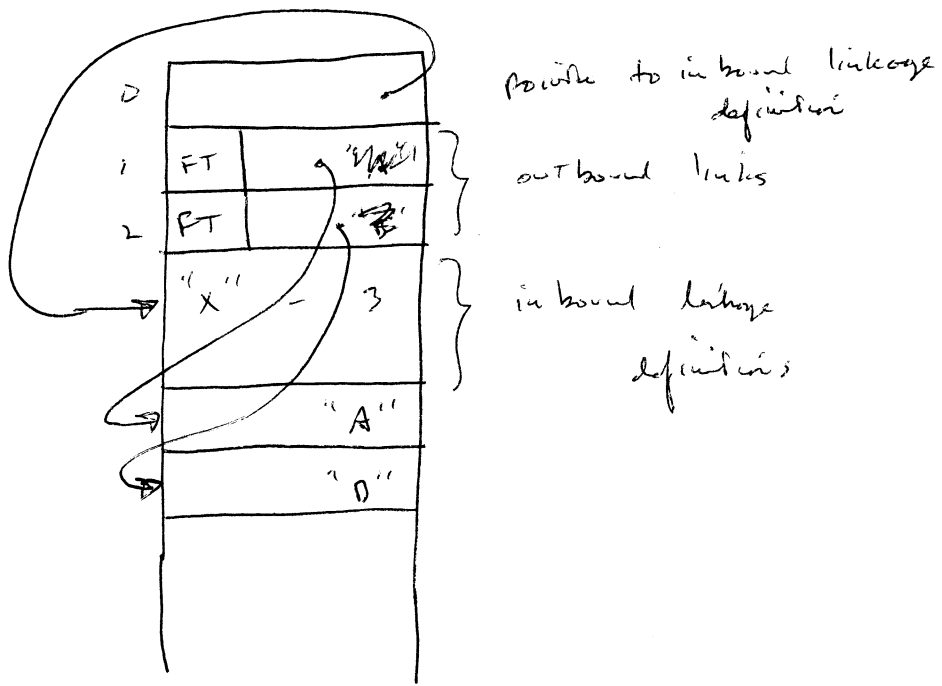 0
pointer to inbound linkage
definition
1 FT
outbound links
2 FT
"X" - 3
inbound linkage
definitions
"A"